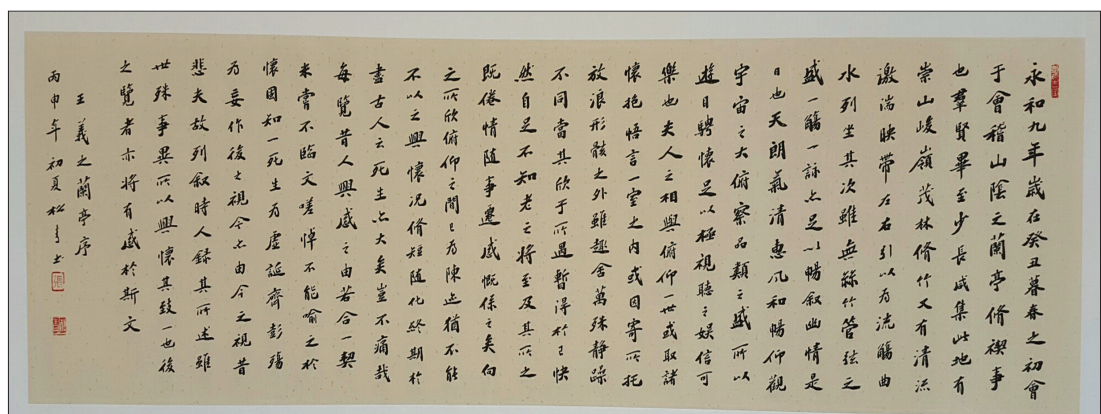 永和九年歲在癸丑暮春之初會
于會稽山陰之蘭亭脩禊事
也羣賢畢至少長咸集此地有
崇山峻嶺茂林脩竹又有清流
激湍映帶左右引以為流觴曲
水列坐其次雖無絲竹管弦之
盛一觴一詠亦足以暢叙幽情是
日也天朗氣清惠風和暢仰觀
宇宙之大俯察品類之盛所以
遊目騁懷足以極視聽之娛信可
樂也夫人之相與俯仰一世或取諸
懷抱悟言一室之内或因寄所托
放浪形骸之外雖趣舍萬殊静躁
不同當其欣于所遇暫得於己快
然自足不知老之將至及其所之
既倦情随事遷感慨係之矣向
之所欣俯仰之間已為陳迹猶不能
不以之興懷況脩短随化終期於
盡古人云死生亦大矣豈不痛哉
每覽昔人興感之由若合一契
未嘗不臨文嗟悼不能喻之於
懷固知一死生為虛誕齊彭殤
為妄作後之視今亦由今之視昔
悲夫故列叙時人録其所述雖
世殊事異所以興懷其致一也後
之覽者亦將有感於斯文
王羲之蘭亭序
丙申年初夏松